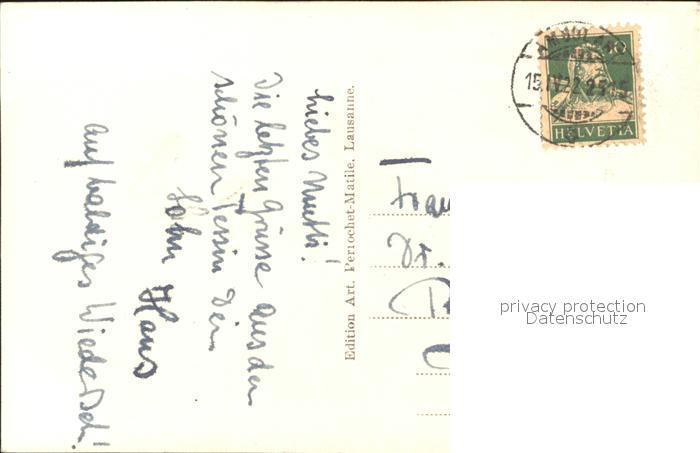 Liebes Mutti!
Die letzten Grüsse aus den
schönen Tessin Dein
Sohn Hans
auf baldiges Wiedersehn!
Edition Art. Perrochet-Matile, Lausanne.
Frau
Dr.
15.IV.22
10
HELVETIA
privacy protection
Datenschutz